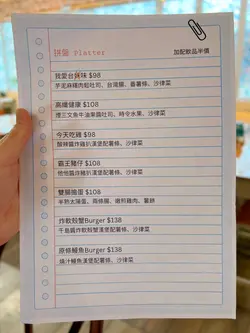 拼盤 Platter
加配飲品半價
我愛台妹味 $98
芋泥麻糬肉鬆吐司、台灣腸、番薯條、沙律菜
高纖健康 $108
煙三文魚牛油果醬吐司、時令水果、沙律菜
今天吃雞 $98
酸辣醬炸雞扒漢堡配薯條、沙律菜
霸王豬仔 $108
他他醬炸豬扒漢堡配薯條、沙律菜
雙腸搵蛋 $108
半熟太陽蛋、兩條腸、嫩煎雞肉、薯餅
炸軟殼蟹Burger $138
千島醬炸軟殼蟹漢堡配薯條、沙律菜
原條鰻魚Burger $138
燒汁鰻魚漢堡配薯條、沙律菜